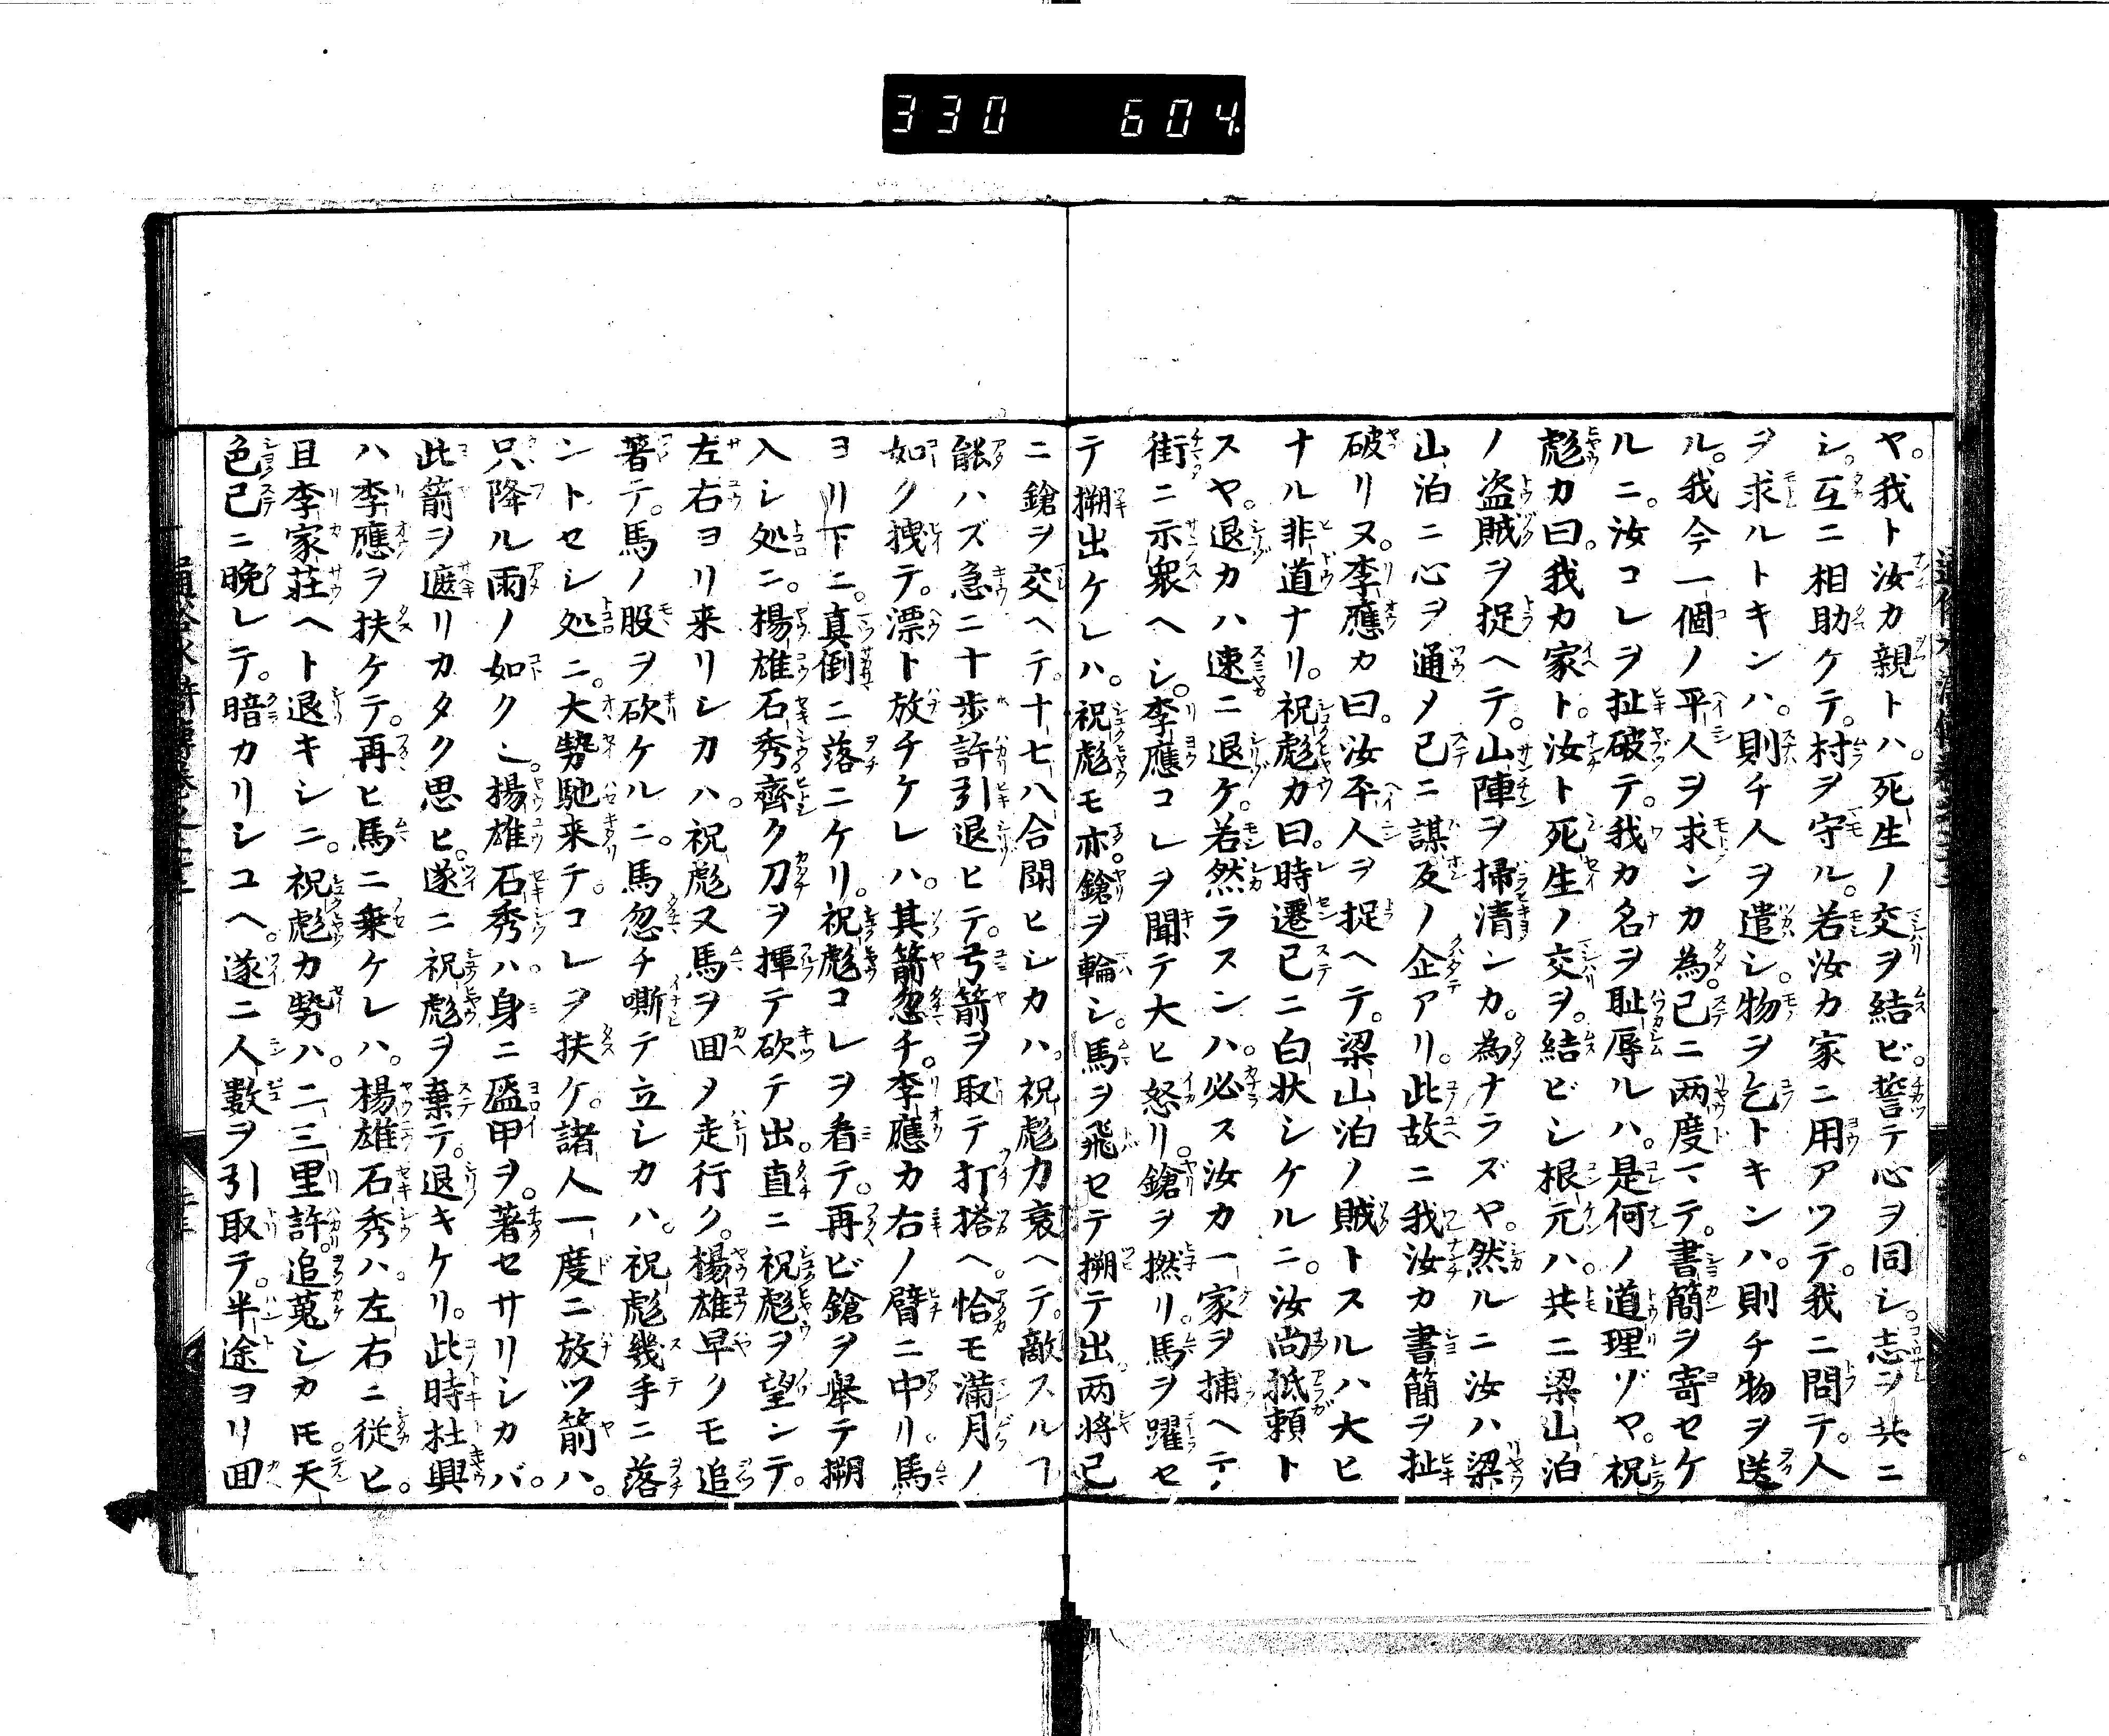 330 604.
ヤ。我ト汝カ親トハ。死生ノ交ヲ結ビ。誓テ心ヲ同シ。志ヲ共ニ
シ。互ニ相助ケテ。村ヲ守ル。若汝カ家ニ用アツテ。我ニ問テ。人
ヲ求ルトキンハ。則チ人ヲ遣シ。物ヲ乞トキンハ。則チ物ヲ送
ル。我今一個ノ平人ヲ求ンカ為。已ニ両度マテ。書簡ヲ寄セケ
ルニ。汝コレヲ扯破テ。我カ名ヲ恥辱ルハ。是何ノ道理ゾヤ。祝
彪カ曰。我カ家ト。汝ト死生ノ交ヲ。結ビシ根元ハ。共ニ梁山泊
ノ盗賊ヲ捉ヘテ。山陣ヲ掃清ンカ。為ナラズヤ。然ルニ汝ハ梁
山泊ニ心ヲ通メ已ニ謀反ノ企アリ。此故ニ我汝カ書簡ヲ扯
破リヌ。李應カ曰。汝平人ヲ捉ヘテ。梁山泊ノ賊トスルハ大ヒ
ナル非道ナリ。祝彪カ曰。時遷已ニ白状シケルニ。汝尚抵頼ト
スヤ。退カハ速ニ退ケ。若然ラスンハ。必ス汝カ一家ヲ捕ヘテ
街ニ示衆ヘシ。李應コレヲ聞テ大ヒ怒リ。鎗ヲ撚リ。馬ヲ躍セ
テ搠出ケレハ。祝彪モ亦。鎗ヲ輪シ。馬ヲ飛セテ搠テ出両将已
ニ鎗ヲ交ヘテ。十七八合闘ヒシカハ。祝彪力衰ヘテ。敵スルヿ
能ハズ急ニ十歩許引退ヒテ。弓箭ヲ取テ打搭ヘ。恰モ満月ノ
如ク拽テ。漂ト放チケレハ。其箭忽チ。李應カ右ノ臂ニ中リ。馬
ヨリ下ニ。真倒ニ落ニケリ。祝彪コレヲ看テ。再ビ鎗ヲ舉テ搠
入レ処ニ。楊雄石秀齊ク刀ヲ揮テ砍テ出。直ニ祝彪ヲ望ンテ。
左右ヨリ来リシカハ。祝彪又馬ヲ囬メ走行ク。楊雄早クモ追
著テ。馬ノ股ヲ砍ケルニ。馬忽チ嘶テ立シカハ。祝彪幾手ニ落
ントセシ処ニ。大勢馳来テ。コレヲ扶ケ。諸人一度ニ放ツ箭ハ。
只降ル雨ノ如ク〻。楊雄石秀ハ。身ニ盔甲ヲ。著セサリシカバ。
此箭ヲ遮リカタク思ヒ。遂ニ祝彪ヲ棄テ。退キケリ。此時杜興
ハ李應ヲ扶ケテ。再ヒ馬ニ乗ケレハ。楊雄石秀ハ。左右ニ従ヒ。
且李家荘ヘト退キシニ。祝彪カ勢ハ。二三里許。追蒐シカ𪜈。天
色已ニ晩レテ。暗カリシユヘ。遂ニ人數ヲ引取テ。半途ヨリ囬